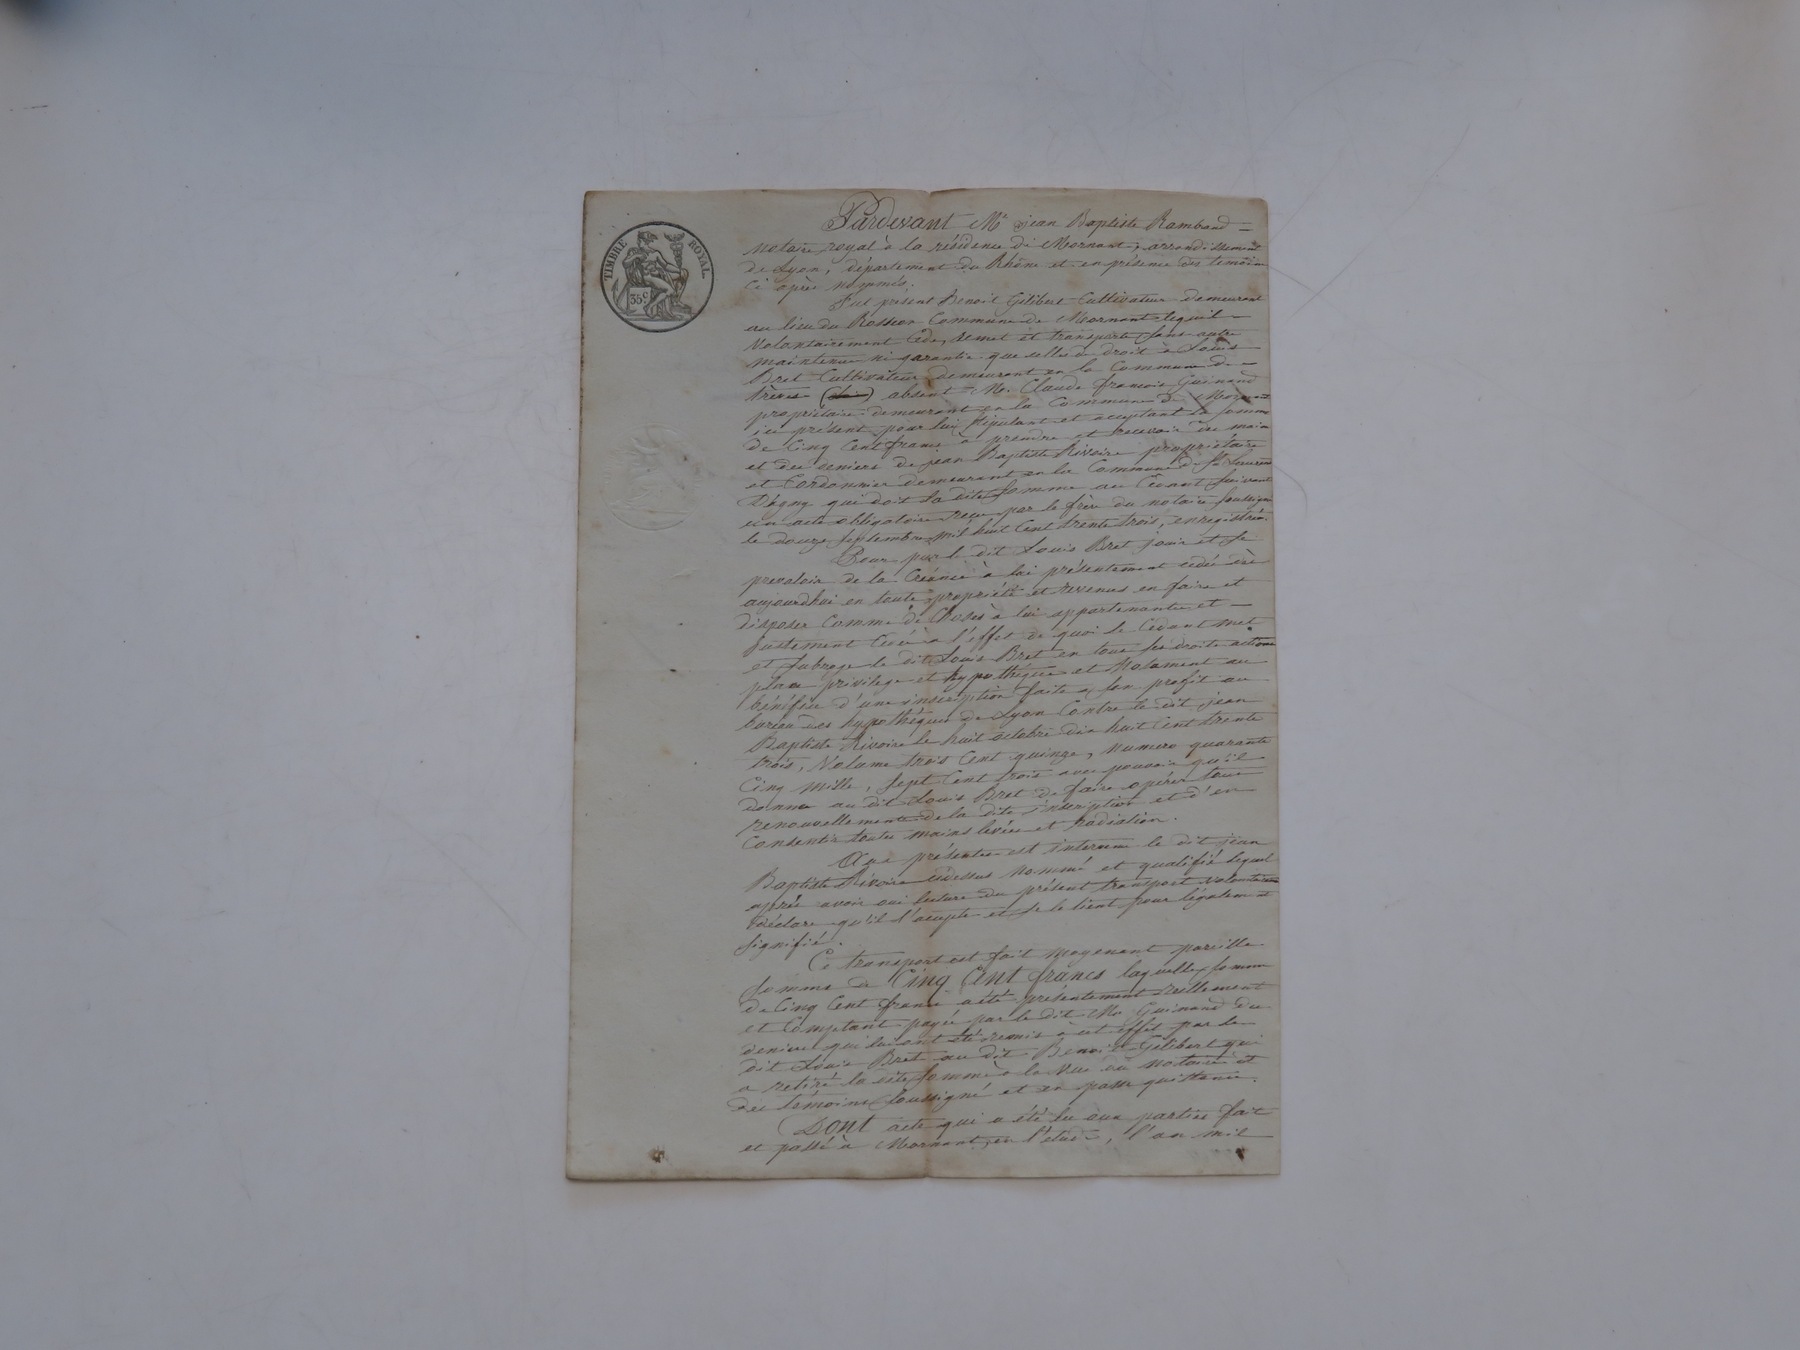 TIMBRE ROYAL
35c
Pardevant Me jean Baptiste Rambaud
notaire royal à la résidence de Mornant, arrondissement
de Lyon, département du Rhône et en présence des temoins
ci après nommés.
Fut présent Benoit Gilibert Cultivateur demeurant
au lieu du Rosseon Commune de Mornant lequel
volontairement Cède, remet et transporte sans autre
maintenue ni garantie que celles de droit à Louis
Bret Cultivateur demeurant en la Commune de
trèves absent M. Claude françois Guinand
propriétaire demeurant en la Commune de Mornant
ici présent pour lui stipulant et acceptant la somme
de Cinq Cent francs à prendre et recevoir des mains
et des deniers de jean Baptiste Rivoire propriétaire
et Cordonnier demeurant en la Commune de St Laurent
D'agny qui doit la dite somme au Cédant suivant
un acte obligatoire reçu par le frère du notaire soussigné
le douze septembre mil huit Cent trente trois, enregistré.
Pour par le dit Louis Bret jouir et se
prevaloir de la Créance à lui présentement cédée dès
aujourd'hui en toute propriété et revenus en faire et
disposer comme de Choses à lui appartenantes et
justement Cédées à l'effet de quoi le Cédant met
et subroge le dit Louis Bret en tous ses droits actions
place privilege et hypothèques et Notament au
bénéfice d'une inscription faite à son profit au
bureau des hypothèques de Lyon Contre le dit jean
Baptiste Rivoire le huit octobre dix huit Cent trente
trois, Volume trois Cent quinze, numero quarante
Cinq mille, sept Cent trois avec pouvoir qu'il
donne au dit Louis Bret de faire opérer tous
renouvellements de la dite inscription et d'en
Consentir toutes mains levées et radiation.
Aux présentes est intervenu le dit jean
Baptiste Rivoire cidessus nommé et qualifié lequel
après avoir oui lecture du présent transport volontairement
déclare qu'il l'accepte et se le tient pour légalement
signifié.
Ce transport est fait moyenant pareille
somme de Cinq Cent francs laquelle somme
de Cinq Cent francs a été présentement réellement
et Comptant payée par le dit M. Guinand des
deniers qui lui ont été remis à cet effet par le
dit Louis Bret au dit Benoit Gilibert qui
a retiré la dite somme à la vue du notaire et
des témoins soussigné et en passe quittance.
DONT acte qui a été lu aux parties fait
et passé à Mornant, en l'étude, l'an mil